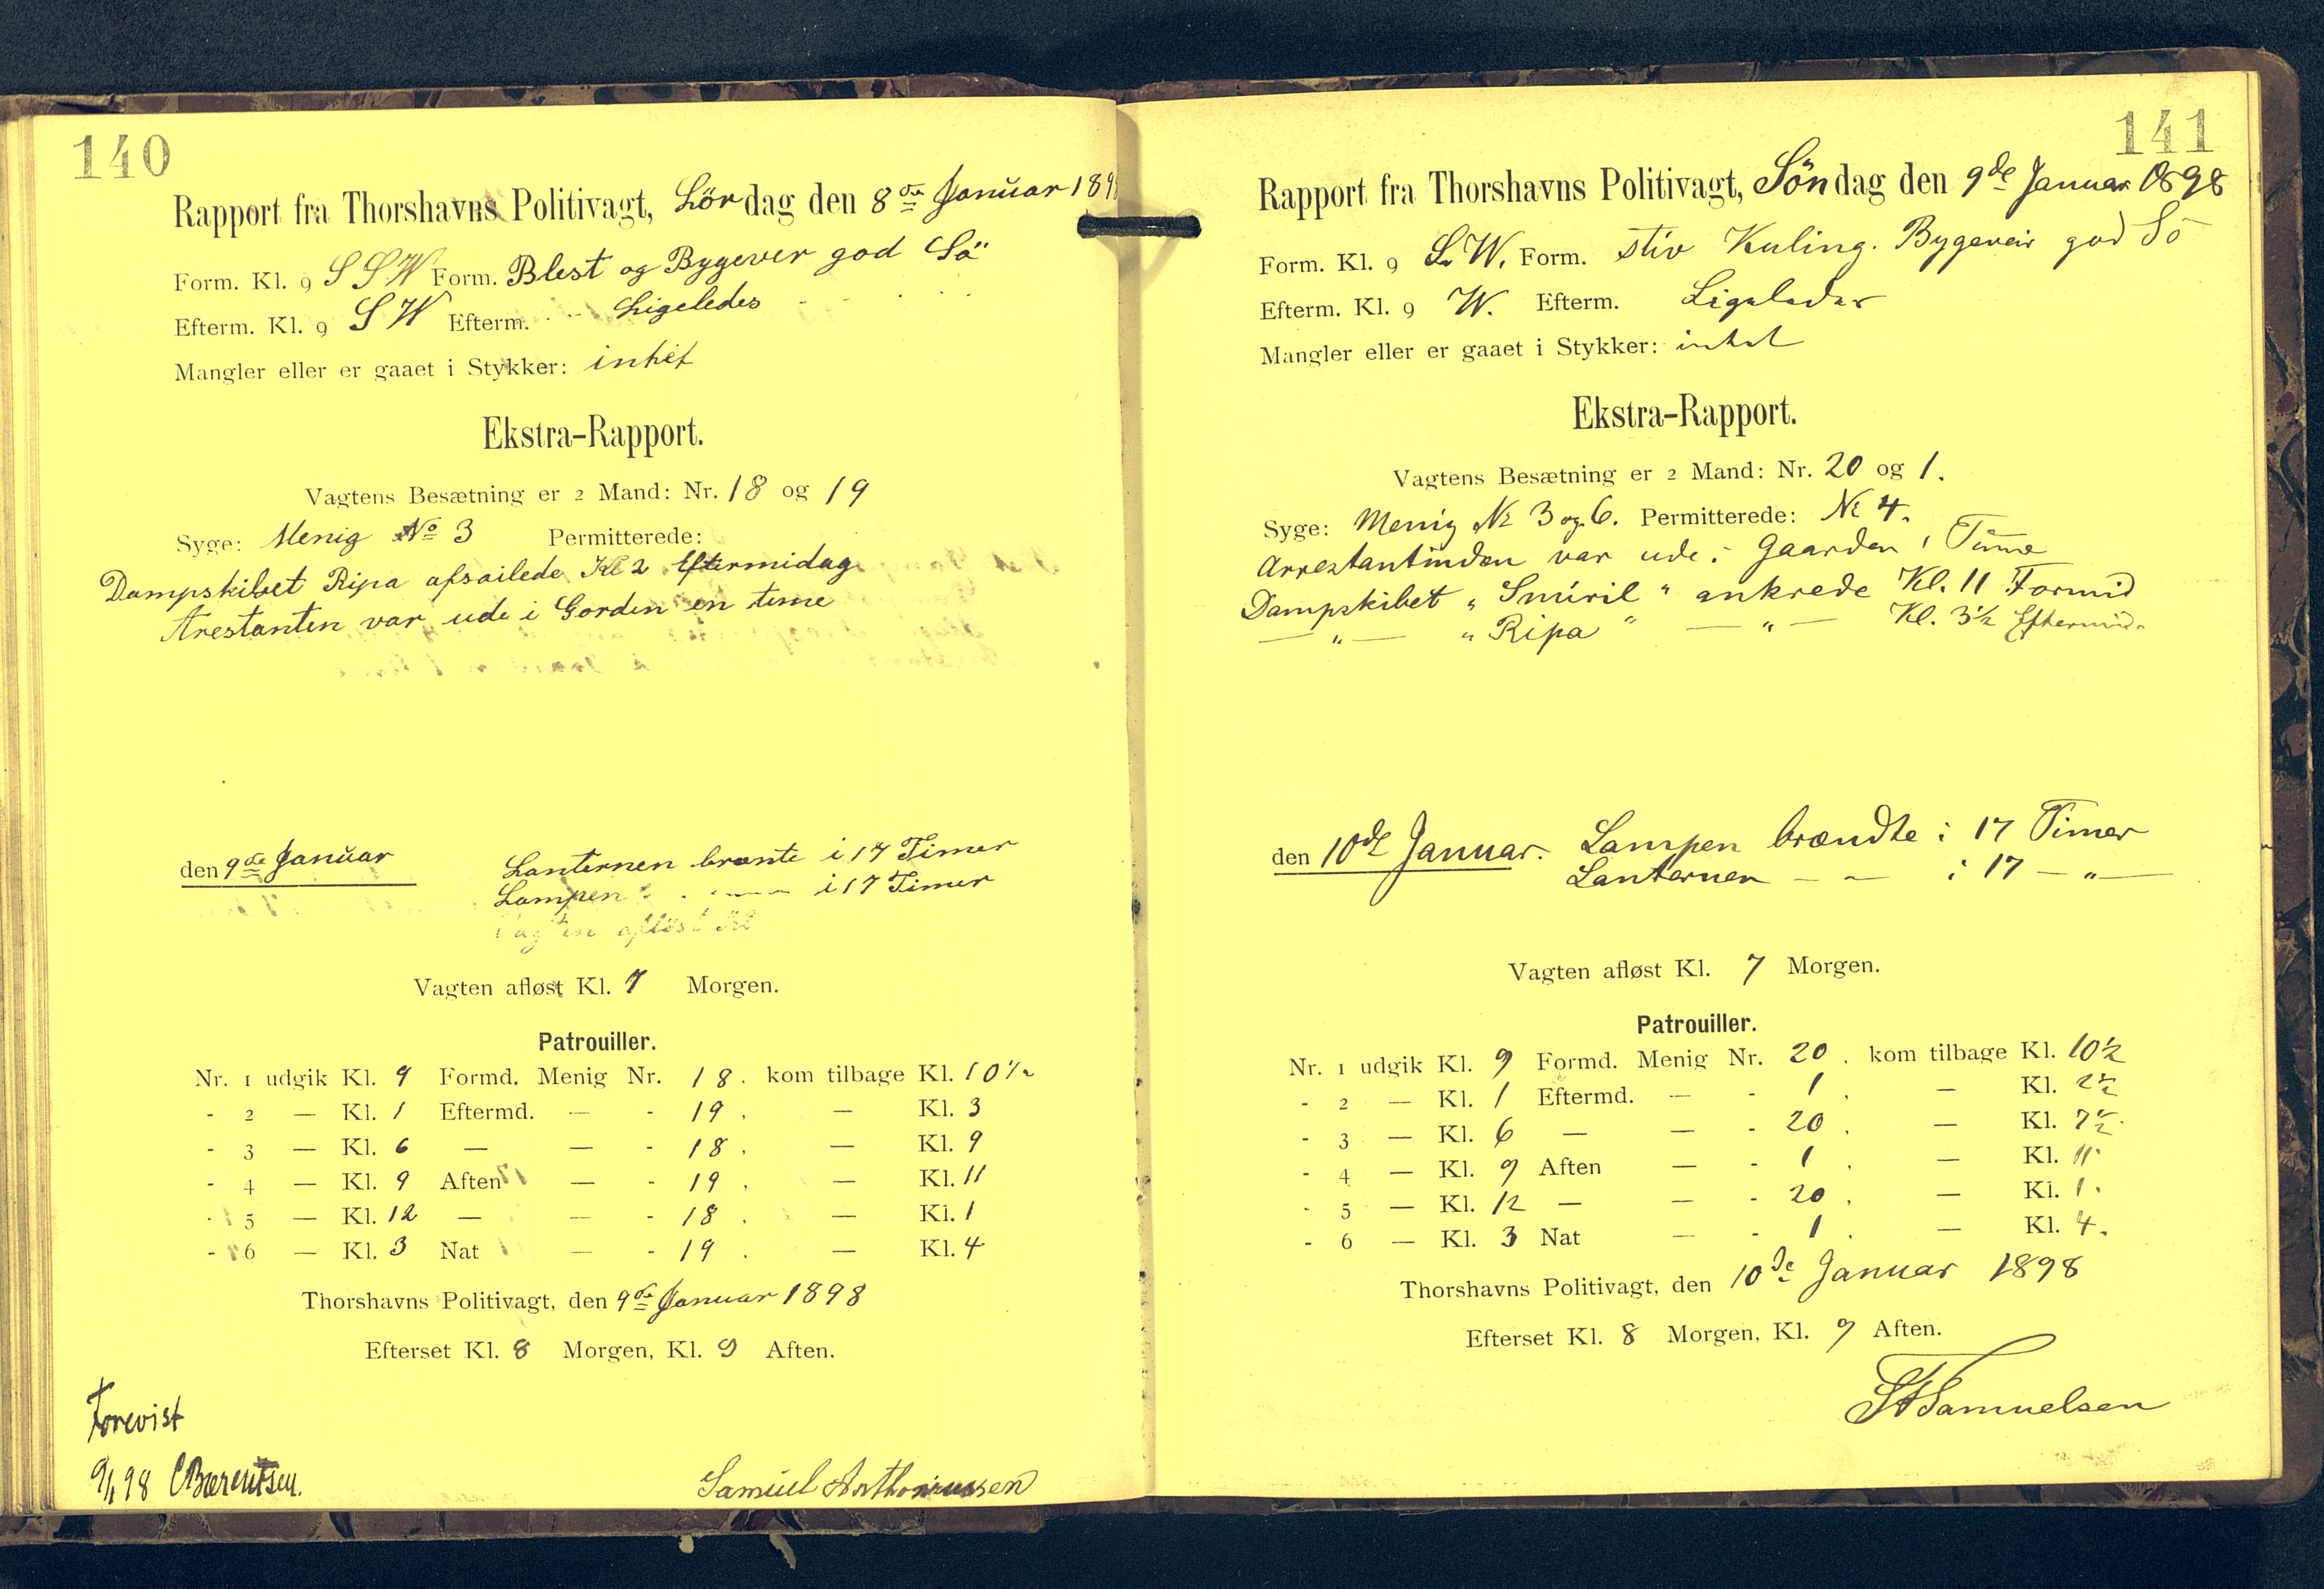 140
Rapport fra Thorshavns Politivagt, Lördag den 8de Januar 189
Form. Kl. 9 S S W Form. Blest og Bygever god Sö
Efterm. Kl. 9 S W Efterm. Ligeledes
Mangler eller er gaaet i Stykker: intet
Ekstra-Rapport.
Vagtens Besætning er 2 Mand: Nr. 18 og 19
Syge: Menig No 3 Permitterede:
Dampskibet Ripa afsailede Kl 2 Eftermidag
Arestanten var ude i Gorden en time
den 9de Januar Lanternen brante i 17 Timer
Lampen i 17 Timer
Vagten afløst Kl
Vagten afløst Kl. 7 Morgen.
Patrouiller.
Nr. 1 udgik Kl. 9 Formd. Menig Nr. 18. kom tilbage Kl. 10½
- 2 — Kl. 1 Eftermd. — - 19. — Kl. 3
- 3 — Kl. 6 — — - 18. — Kl. 9
- 4 — Kl. 9 Aften — - 19. — Kl. 11
- 5 — Kl. 12 — — - 18. — Kl. 1
- 6 — Kl. 3 Nat — - 19. — Kl. 4
Thorshavns Politivagt, den 9de Januar 1898
Efterset Kl. 8 Morgen, Kl. 9 Aften.
Forevist
9/1 98 CBærentsen.
Samúel Anthoniussen
141
Rapport fra Thorshavns Politivagt, Söndag den 9de Januar 1898
Form. Kl. 9 S.W. Form. stiv Kuling. Bygeveir god Sö
Efterm. Kl. 9 W. Efterm. Ligeledes
Mangler eller er gaaet i Stykker: intet
Ekstra-Rapport.
Vagtens Besætning er 2 Mand: Nr. 20 og 1.
Syge: Menig Nr 3 og 6. Permitterede: Nr 4.
Arrestantinden var ude i Gaarden 1 Time
Dampskibet „Smiril" ankrede Kl. 11 Formid
— „ — „Ripa" — „ — Kl. 3½ Eftermid.
den 10de Januar. Lampen brændte i 17 Timer
Lanternen — — i 17 — „ —
Vagten afløst Kl. 7 Morgen.
Patrouiller.
Nr. 1 udgik Kl. 9 Formd. Menig Nr. 20. kom tilbage Kl. 10½
- 2 — Kl. 1 Eftermd. — - 1. — Kl. 2½
- 3 — Kl. 6 — — - 20. — Kl. 7½.
- 4 — Kl. 9 Aften — - 1. — Kl. 11.
- 5 — Kl. 12 — — - 20. — Kl. 1.
- 6 — Kl. 3 Nat — - 1. — Kl. 4.
Thorshavns Politivagt, den 10de Januar 1898
Efterset Kl. 8 Morgen, Kl. 9 Aften.
Samuelsen